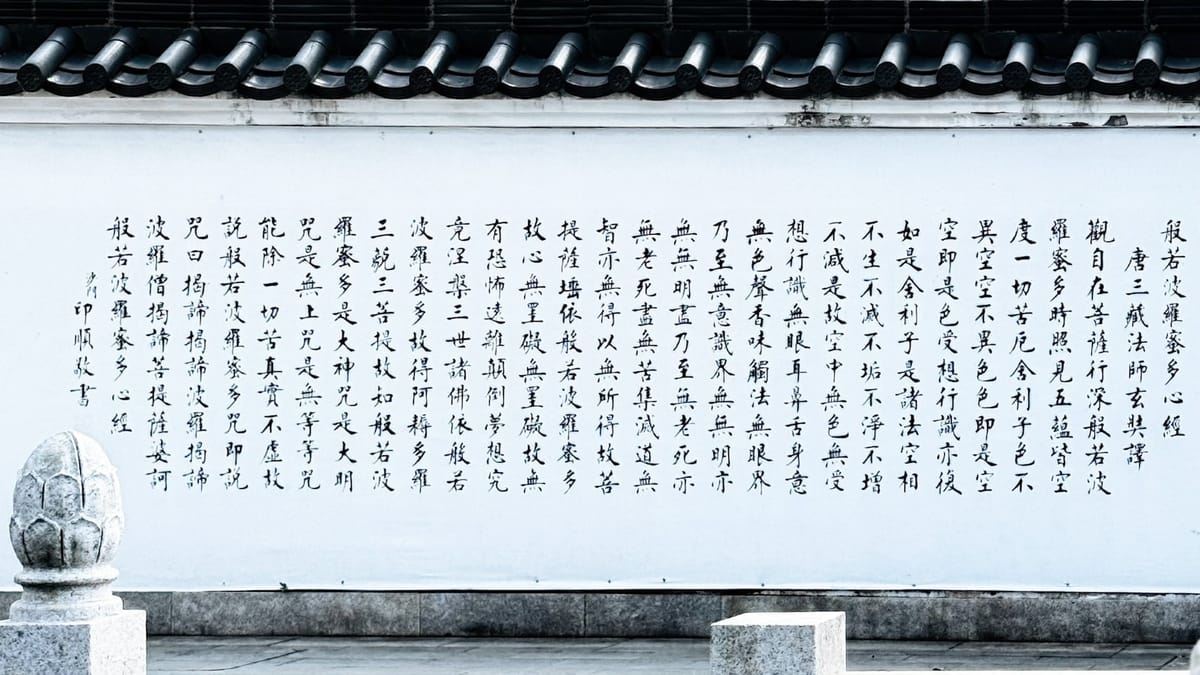 般若波羅蜜多心經
唐三藏法師玄奘譯
觀自在菩薩行深般若波
羅蜜多時照見五蘊皆空
度一切苦厄舍利子色不
異空空不異色色即是空
空即是色受想行識亦復
如是舍利子是諸法空相
不生不滅不垢不淨不增
不減是故空中無色無受
想行識無眼耳鼻舌身意
無色聲香味觸法無眼界
乃至無意識界無無明亦
無無明盡乃至無老死亦
無老死盡無苦集滅道無
智亦無得以無所得故菩
提薩埵依般若波羅蜜多
故心無罣礙無罣礙故無
有恐怖遠離顛倒夢想究
竟涅槃三世諸佛依般若
波羅蜜多故得阿耨多羅
三藐三菩提故知般若波
羅蜜多是大神咒是大明
咒是無上咒是無等等咒
能除一切苦真實不虛故
說般若波羅蜜多咒即說
咒曰揭諦揭諦波羅揭諦
波羅僧揭諦菩提薩婆訶
般若波羅蜜多心經
沙門印順敬書